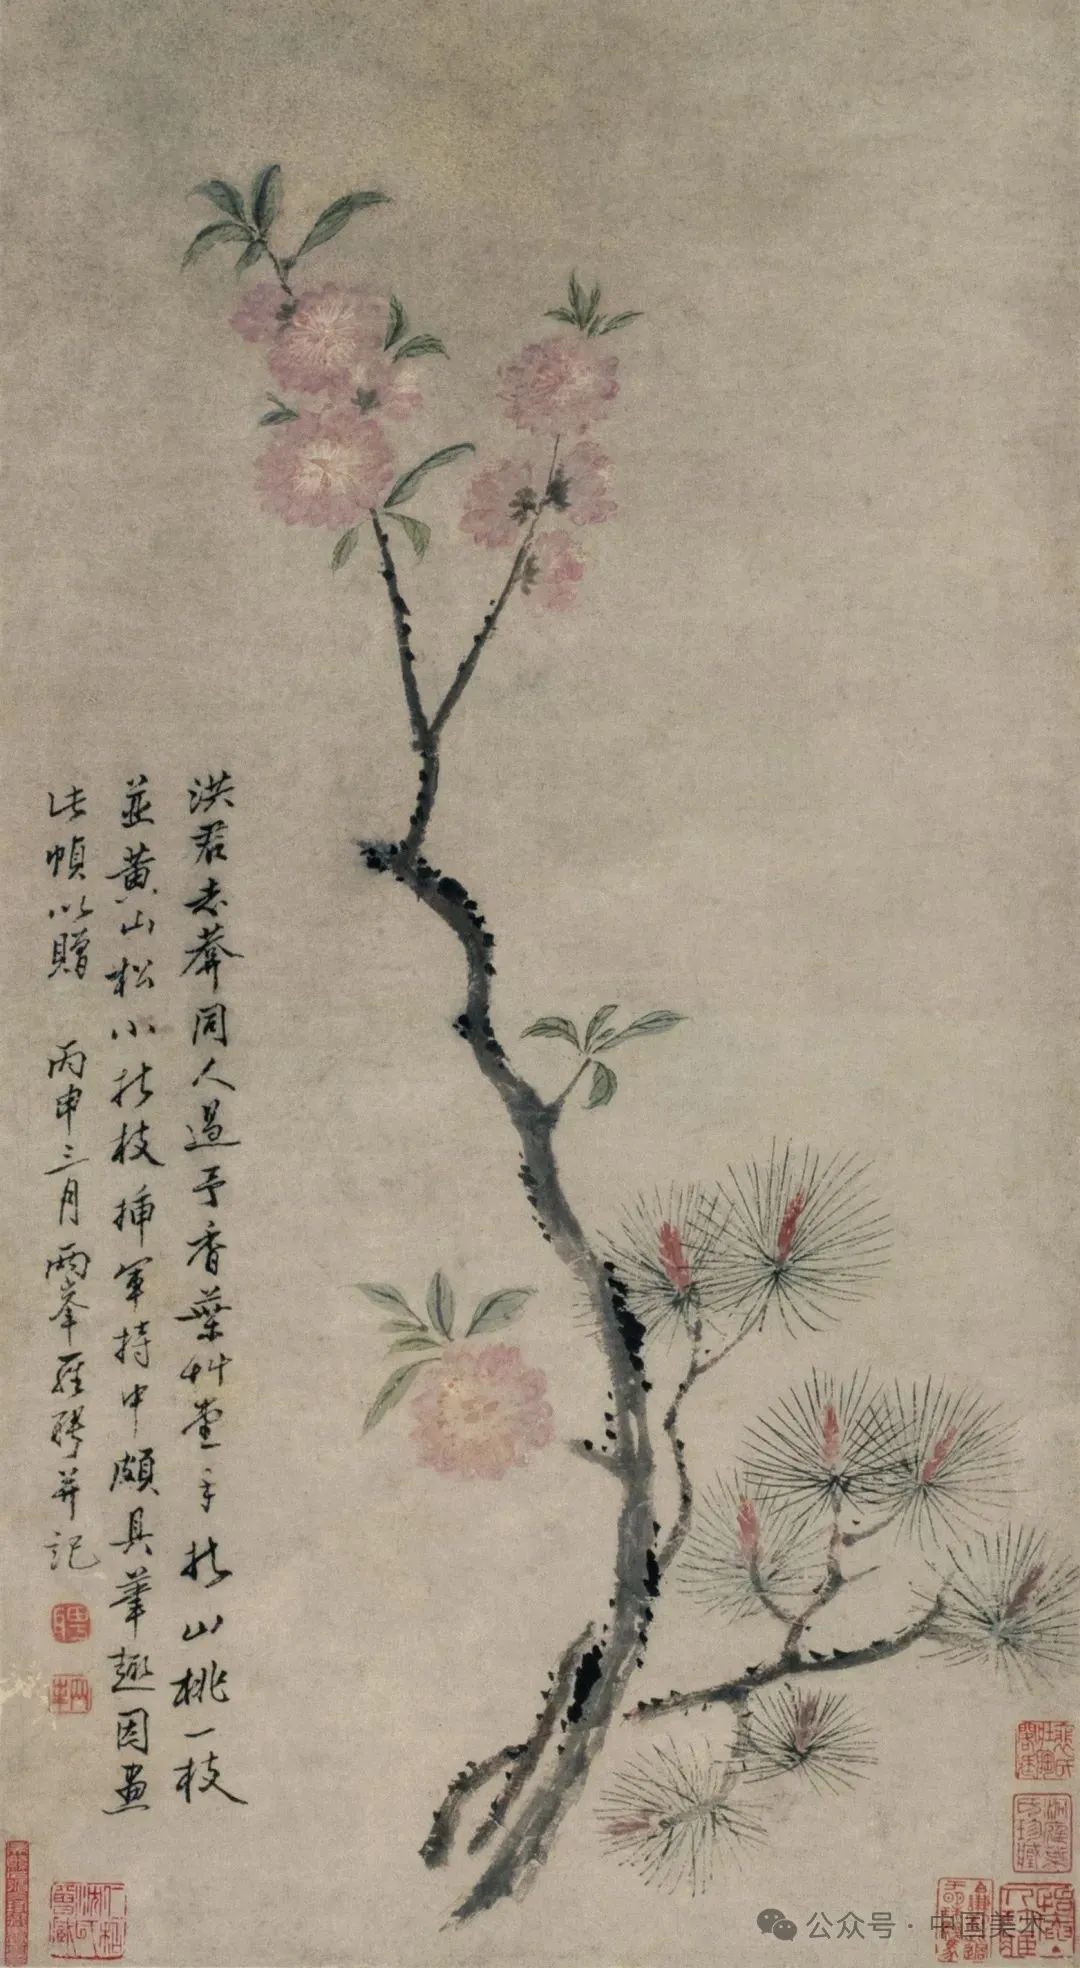 洪君志莾同人過予香葉艸堂手折山桃一枝
並黄山松小折枝揷軍持中頗具華趣因畫
此幀以贈 丙申三月兩峯羅聘并記
公众号·中国美术